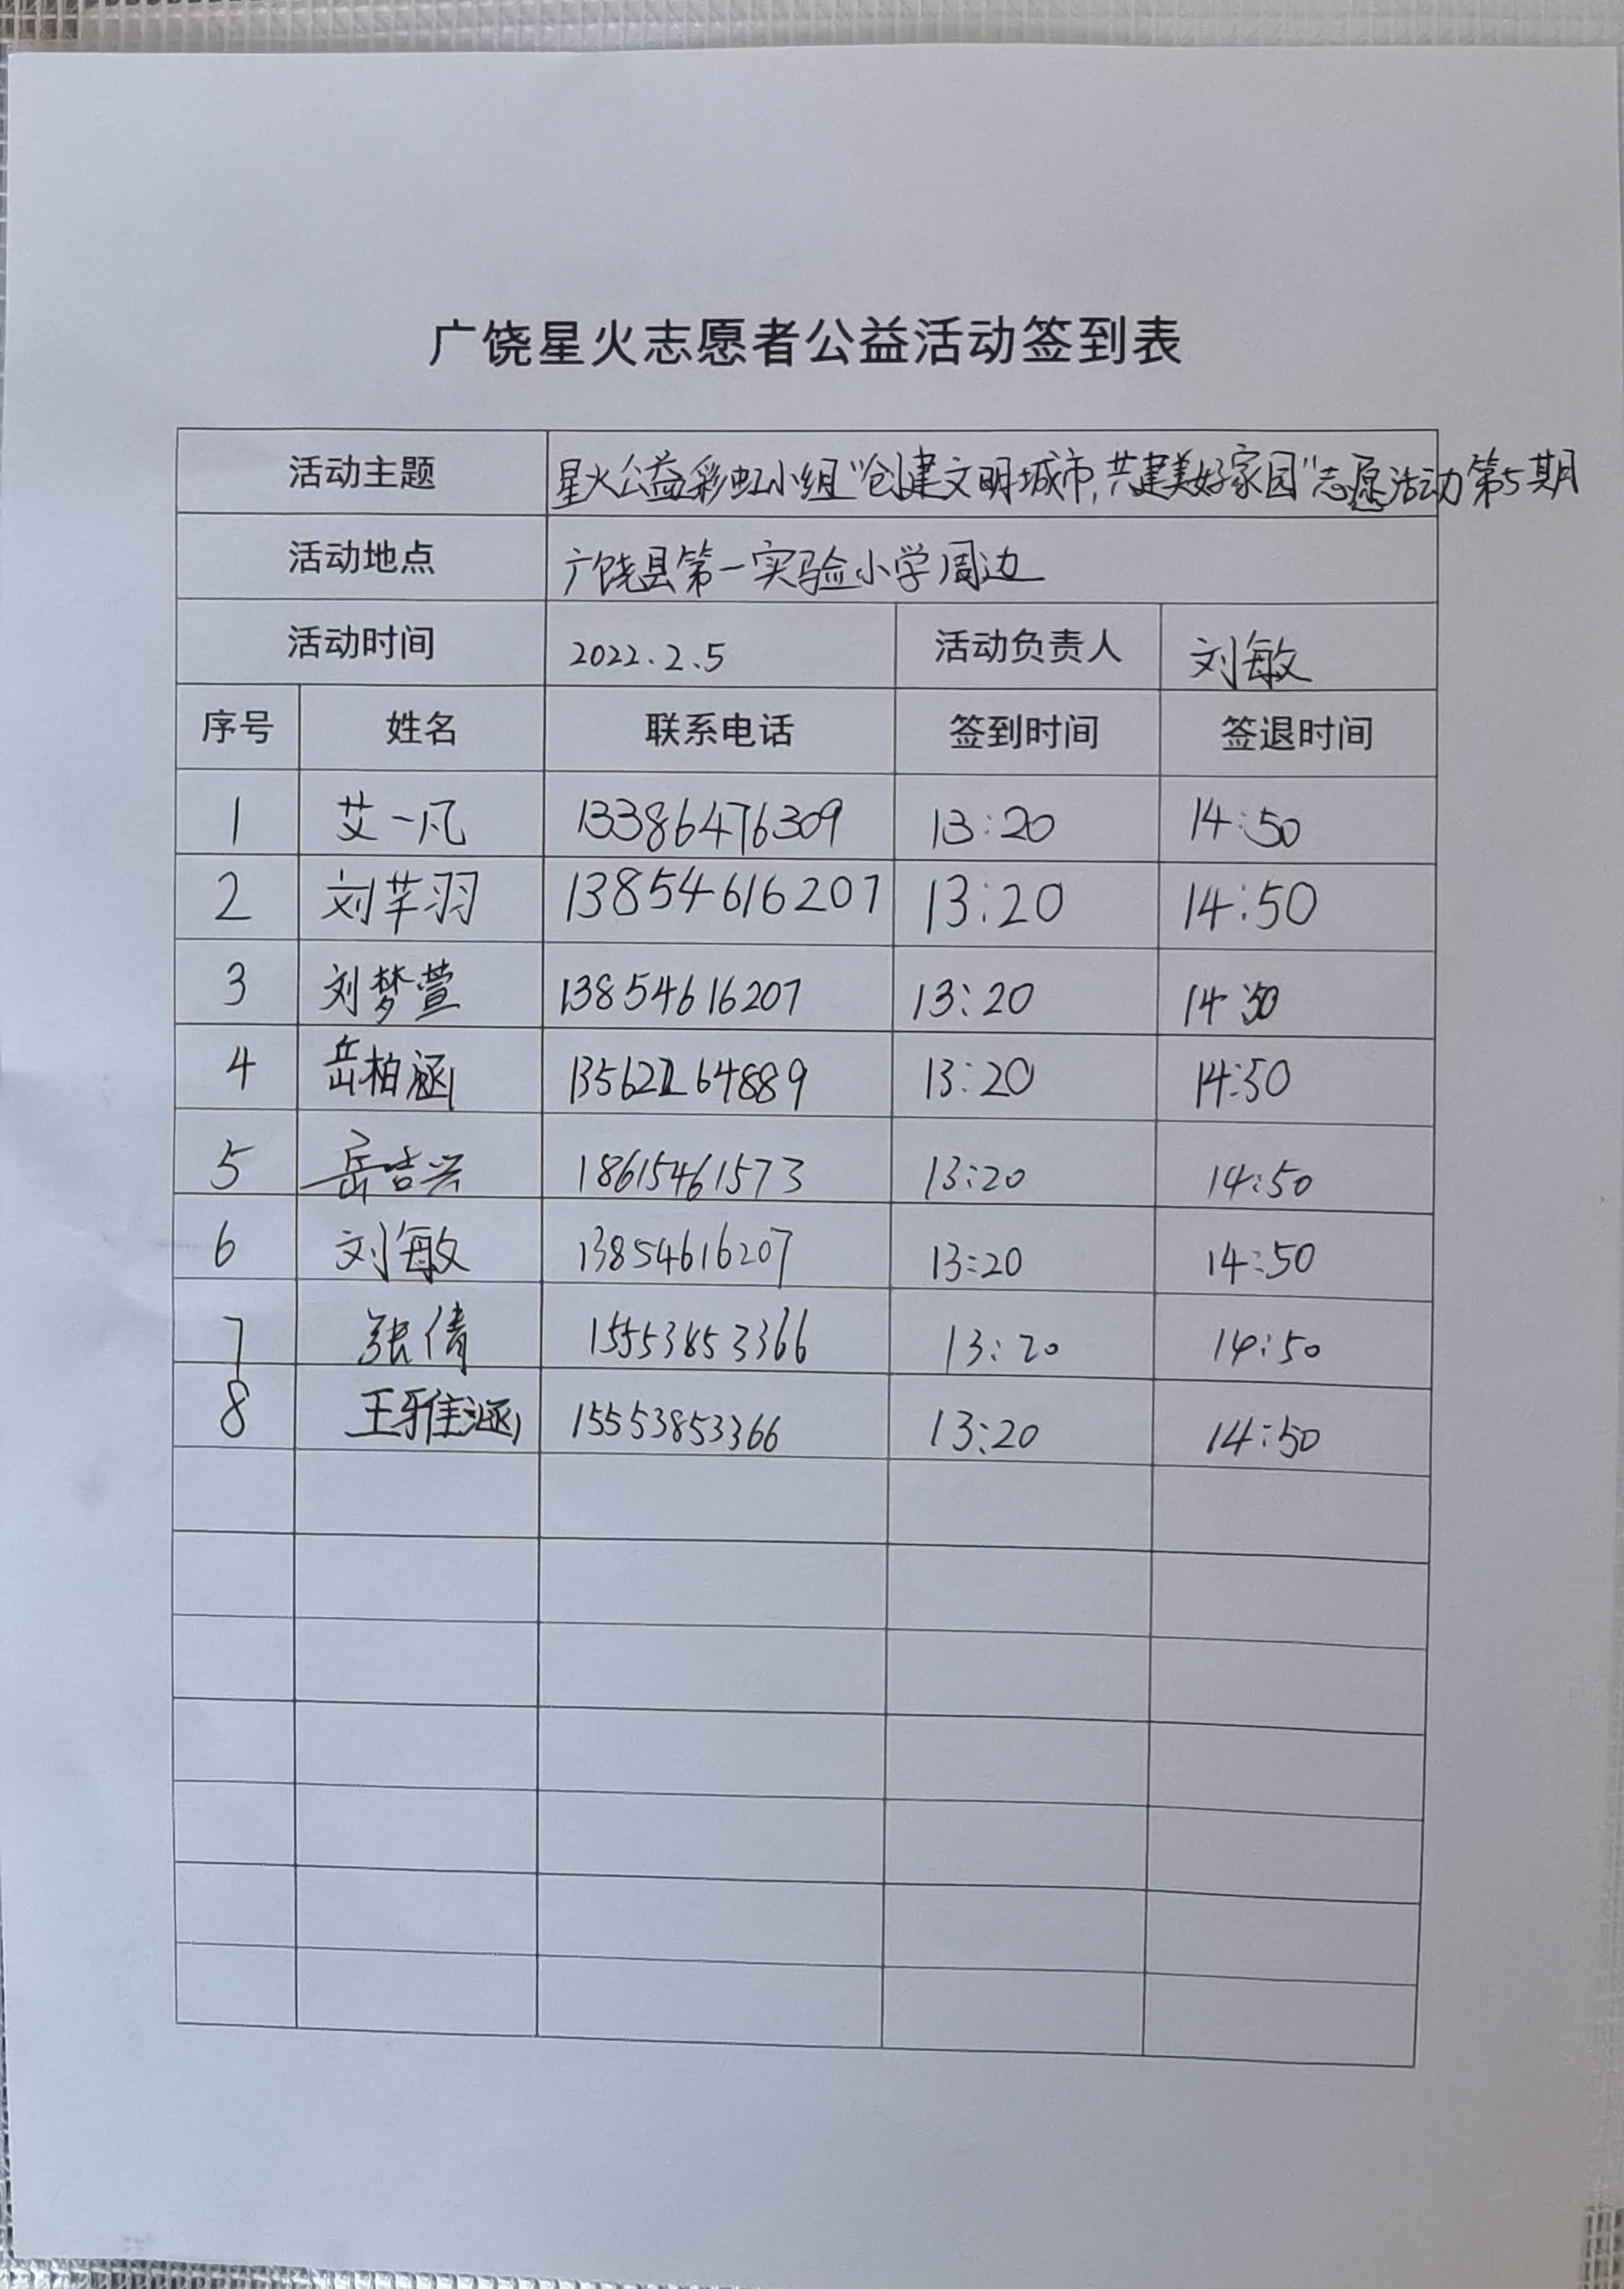 广饶星火志愿者公益活动签到表
活动主题 星火公益彩虹小组“创建文明城市,共建美好家园”志愿活动第5期
活动地点 广饶县第一实验小学周边
活动时间 2022.2.5 活动负责人 刘敏
序号 姓名 联系电话 签到时间 签退时间
1 艾一凡 13386476309 13:20 14:50
2 刘芊羽 13854616207 13:20 14:50
3 刘梦萱 13854616207 13:20 14:50
4 岳柏涵 13:20 14:50
5 岳吉兴 18615461573 13:20 14:50
6 刘敏 13854616207 13:20 14:50
7 张倩 15553853366 13:20 14:50
8 王雅涵 15553853366 13:20 14:50